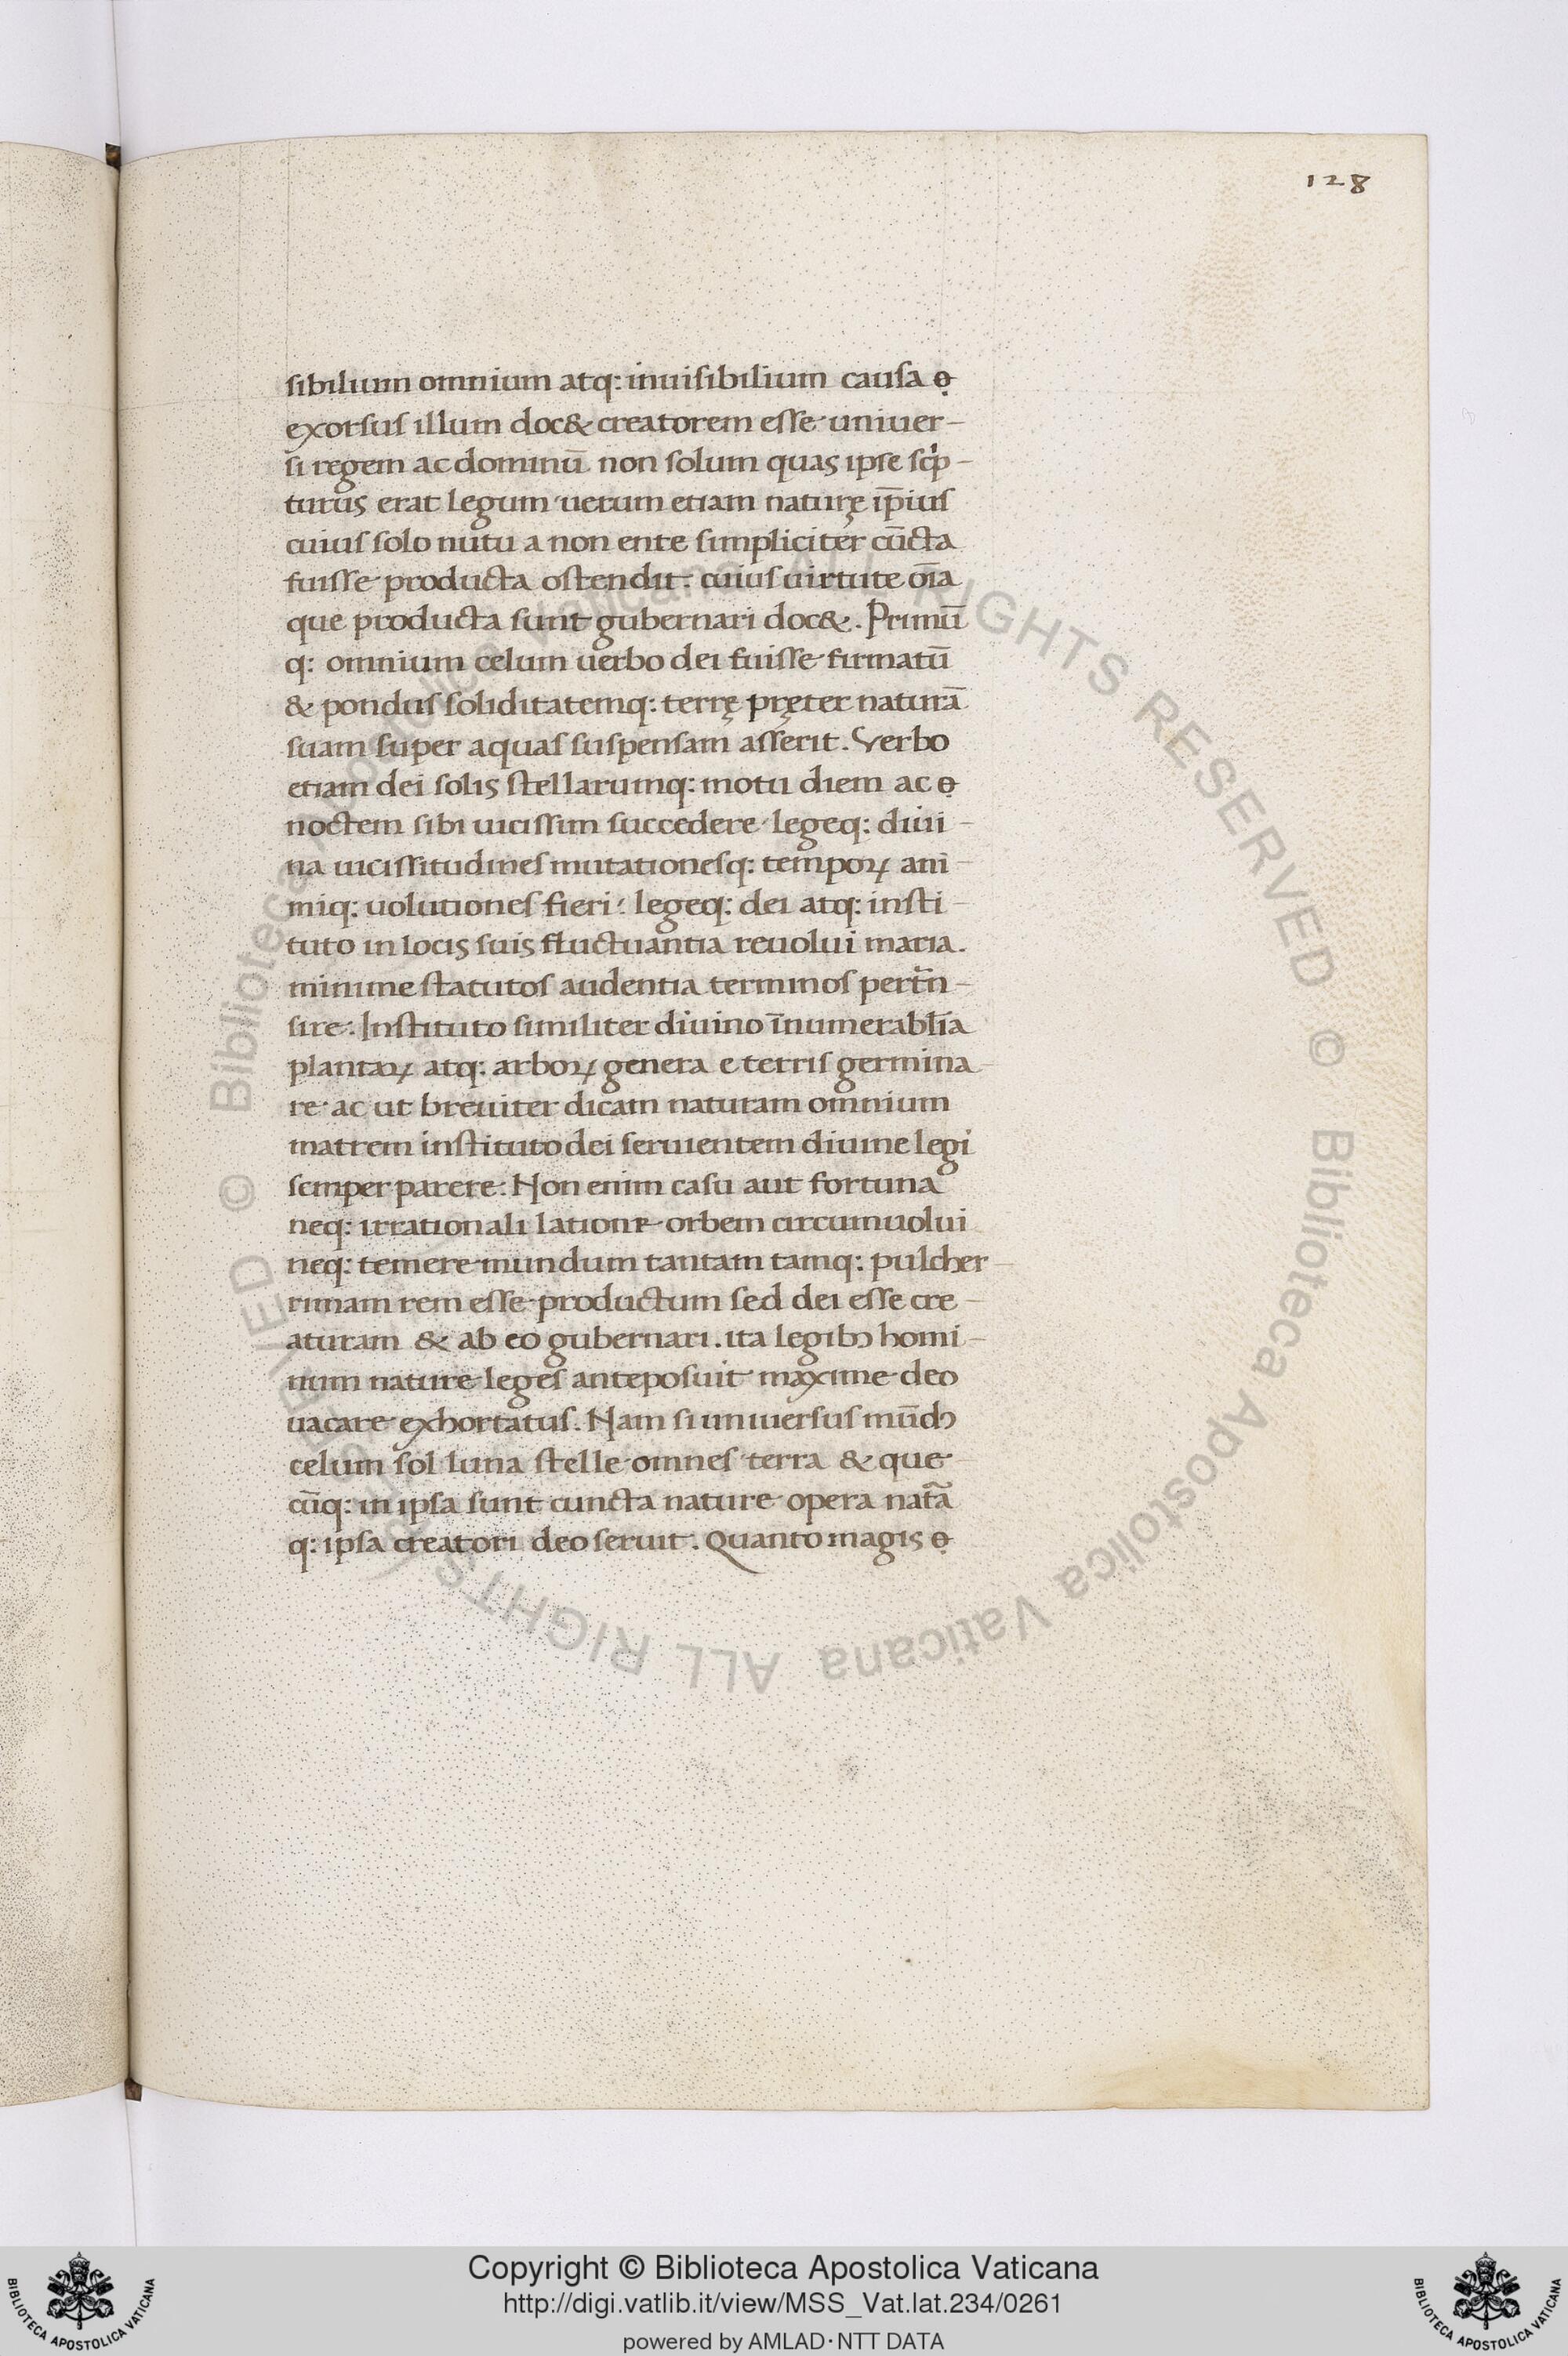 128
sibilium omnium atq: inuisibilium causa ẹ
exorsus illum doc& creatorem esse uniuer-
si regem ac dominū non solum quas ipse scp̄-
turus erat legum uerum etiam naturę ip̄ius
cuius solo nutu a non ente simpliciter cūcta
fuisse producta ostendit. cuius uirtute oīa
que producta sunt gubernari doc&. Primū
q: omnium celum uerbo dei fuisse firmatū
& pondus soliditatemq: terrę pręter naturā
suam super aquas suspensam asserit. Verbo
etiam dei solis stellarumq: motu diem ac ẹ
noctem sibi uicissim succedere legeq: diui-
na uicissitudines mutationesq: tempoꝝ ani-
miq: uolutiones fieri: legeq: dei atq: insti-
tuto in locis suis fluctuantia reuolui maria.
minime statutos audentia terminos pertn̄-
sire: Instituto similiter diuino īnumerabl̄ia
plantaꝝ atq: arboꝝ genera e terris germina-
re ac ut breuiter dicam naturam omnium
matrem instituto dei seruientem diuine legi
semper parere: Non enim casu aut fortuna
neq: irrationali latione orbem circumuolui
neq: temere mundum tantam tamq: pulcher-
rimam rem esse productum sed dei esse cre-
aturam & ab eo gubernari. ita legibꝰ homi-
num nature leges anteposuit maxime deo
uacare exhortatus. Nam si uniuersus mūdꝰ
celum sol luna stelle omnes terra & que
cūq: in ipsa sunt cuncta nature opera nat̄a
q: ipsa creatori deo seruit. Quanto magis ẹ
© Biblioteca Apostolica Vaticana ALL RIGHTS RESERVED © Biblioteca Apostolica Vaticana ALL RIGHTS RESERVED
Copyright © Biblioteca Apostolica Vaticana
http://digi.vatlib.it/view/MSS_Vat.lat.234/0261
powered by AMLAD·NTT DATA
BIBLIOTECA APOSTOLICA VATICANA
BIBLIOTECA APOSTOLICA VATICANA